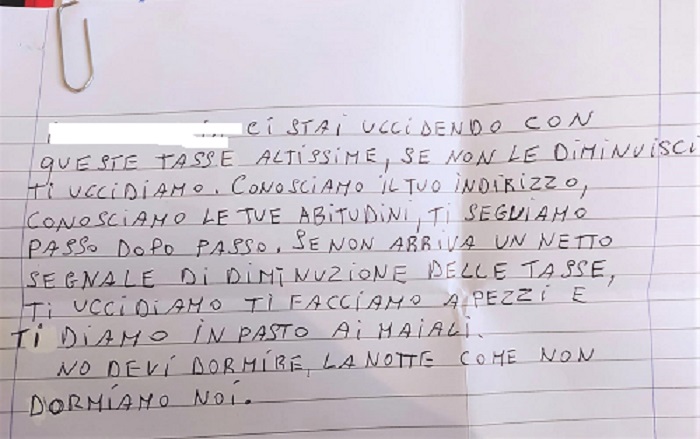 CI STAI UCCIDENDO CON
QUESTE TASSE ALTISSIME, SE NON LE DIMINUISCI
TI UCCIDIAMO. CONOSCIAMO IL TUO INDIRIZZO,
CONOSCIAMO LE TUE ABITUDINI, TI SEGUIAMO
PASSO DOPO PASSO. SE NON ARRIVA UN NETTO
SEGNALE DI DIMINUZIONE DELLE TASSE,
TI UCCIDIAMO TI FACCIAMO A PEZZI E
TI DIAMO IN PASTO AI MAIALI.
NO DEVI DORMIRE, LA NOTTE COME NON
DORMIAMO NOI.